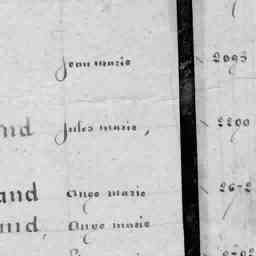 Jean marie 2095
nd Jules marie, 2290
and Ange marie 2672
nd, Ange marie